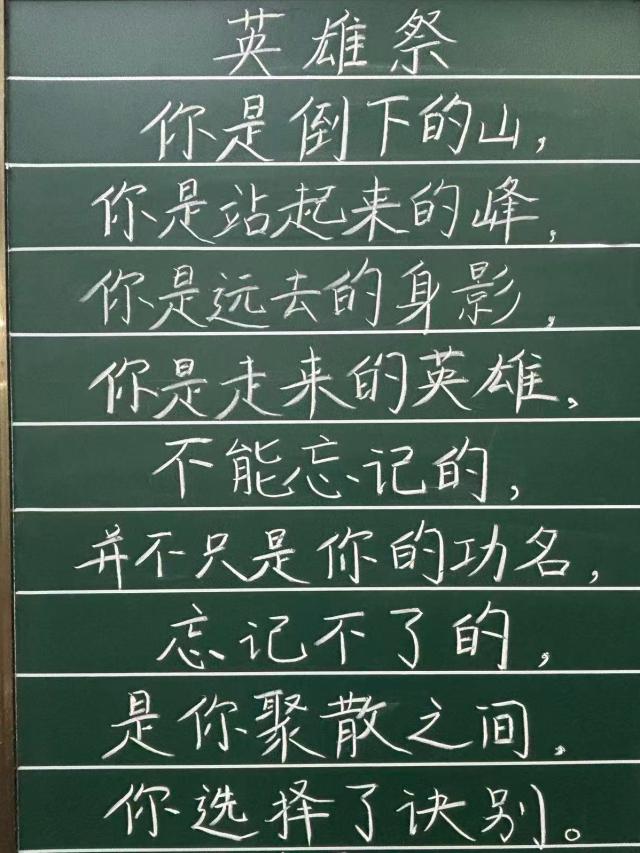 英雄祭
你是倒下的山,
你是站起来的峰,
你是远去的身影,
你是走来的英雄,
不能忘记的,
并不只是你的功名,
忘记不了的,
是你聚散之间,
你选择了诀别。